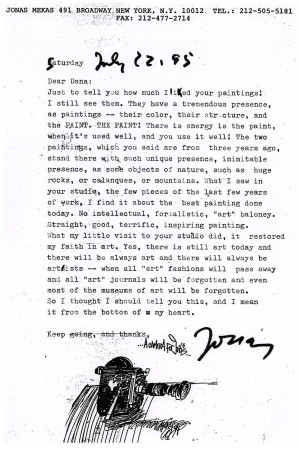 JONAS MEKAS 491 BROADWAY NEW YORK, N.Y. 10012 TEL.: 212-505-5181
FAX: 212-477-2714
Saturday July 22, 95
Dear Dana:
Just to tell you how much I liked your paintings!
I still see them. They have a tremendous presence,
as paintings -- their color, their structure, and
the PAINT. THE PAINT! There is energy is the paint,
when it's used well, and you use it well! The two
paintings, which you said are from three years ago,
stand there with such unique presence, inimitable
presence, as some objects of nature, such as huge
rocks, or calanques, or mountains. What I saw in
your studio, the few pieces of the last few years
of work, I find it about the best painting done
today. No intellectual, formalistic, "art" baloney.
Straight, good, terrific, inspiring painting.
What my little visit to your studio did, it restored
my faith in art. Yes, there is still art today and
there will be always art and there will always be
artists -- when all "art" fashions will pass away
and all "art" journals will be forgotten and even
most of the museums of art will be forgotten.
So I thought I should tell you this, and I mean
it from the bottom of my heart.
Keep going, and thanks,
Jonas